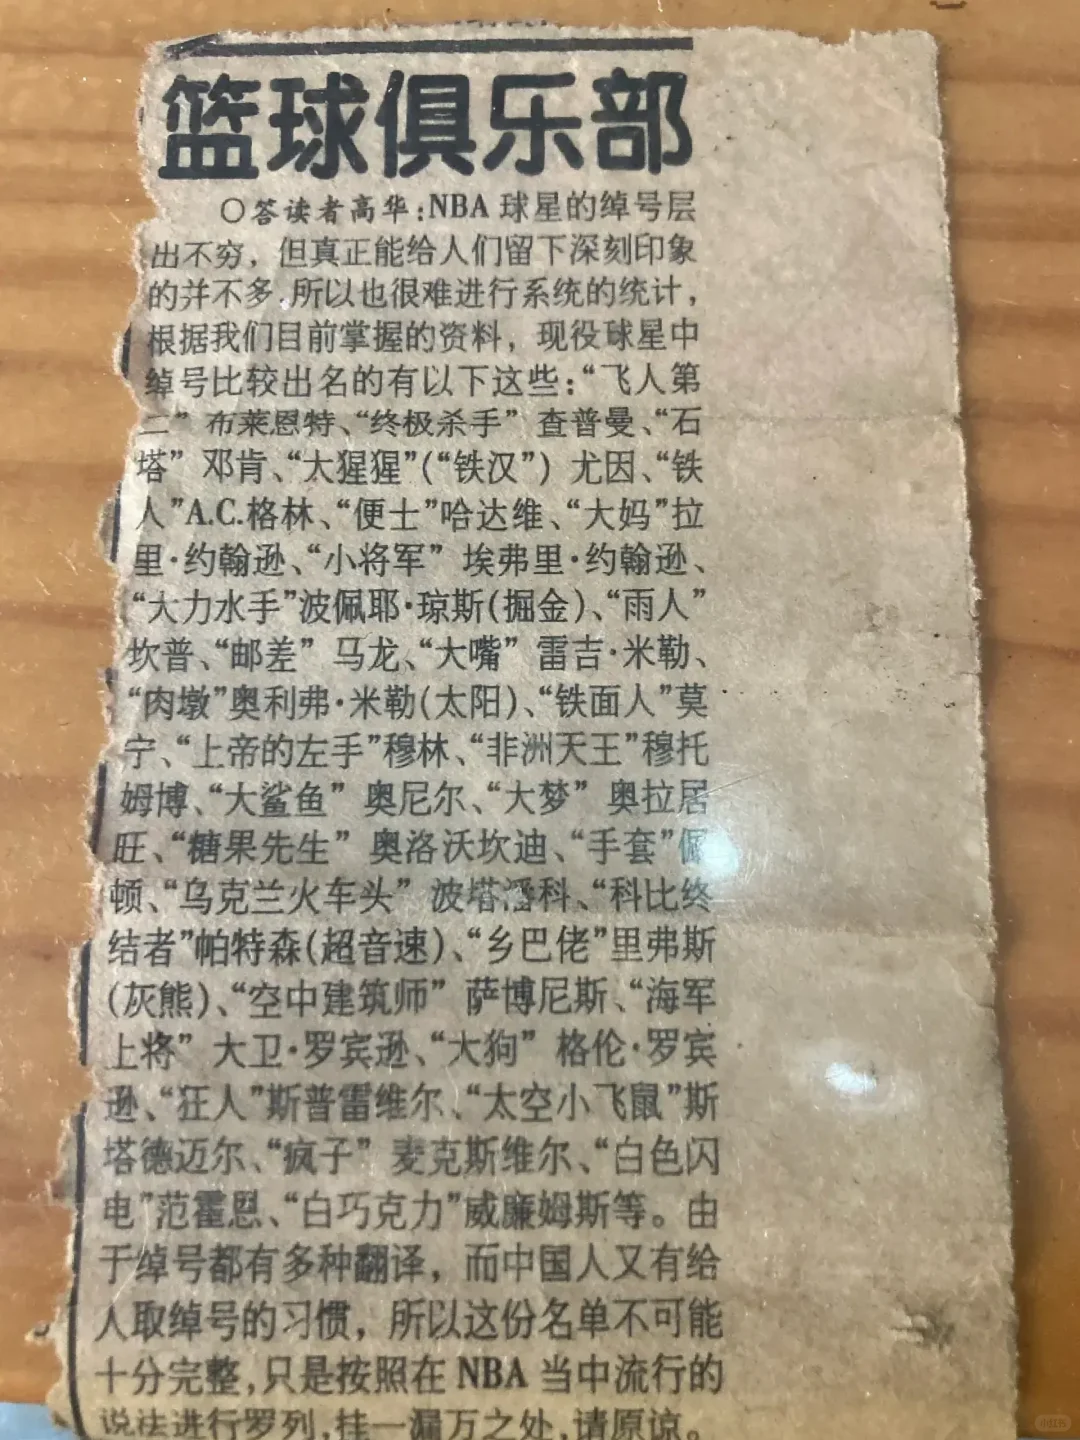 篮球俱乐部
○答读者高华：NBA 球星的绰号层
出不穷，但真正能给人们留下深刻印象
的并不多，所以也很难进行系统的统计，
根据我们目前掌握的资料，现役球星中
绰号比较出名的有以下这些：“飞人第
二”布莱恩特、“终极杀手”查普曼、“石
塔”邓肯、“大猩猩”(“铁汉”)尤因、“铁
人”A.C.格林、“便士”哈达维、“大妈”拉
里·约翰逊、“小将军”埃弗里·约翰逊、
“大力水手”波佩耶·琼斯(掘金)、“雨人”
坎普、“邮差”马龙、“大嘴”雷吉·米勒、
“肉墩”奥利弗·米勒(太阳)、“铁面人”莫
宁、“上帝的左手”穆林、“非洲天王”穆托
姆博、“大鲨鱼”奥尼尔、“大梦”奥拉居
旺、“糖果先生”奥洛沃坎迪、“手套”佩
顿、“乌克兰火车头”波塔潘科、“科比终
结者”帕特森(超音速)、“乡巴佬”里弗斯
(灰熊)、“空中建筑师”萨博尼斯、“海军
上将”大卫·罗宾逊、“大狗”格伦·罗宾
逊、“狂人”斯普雷维尔、“太空小飞鼠”斯
塔德迈尔、“疯子”麦克斯维尔、“白色闪
电”范霍恩、“白巧克力”威廉姆斯等。由
于绰号都有多种翻译，而中国人又有给
人取绰号的习惯，所以这份名单不可能
十分完整，只是按照在 NBA 当中流行的
说法进行罗列，挂一漏万之处，请原谅。
小红书